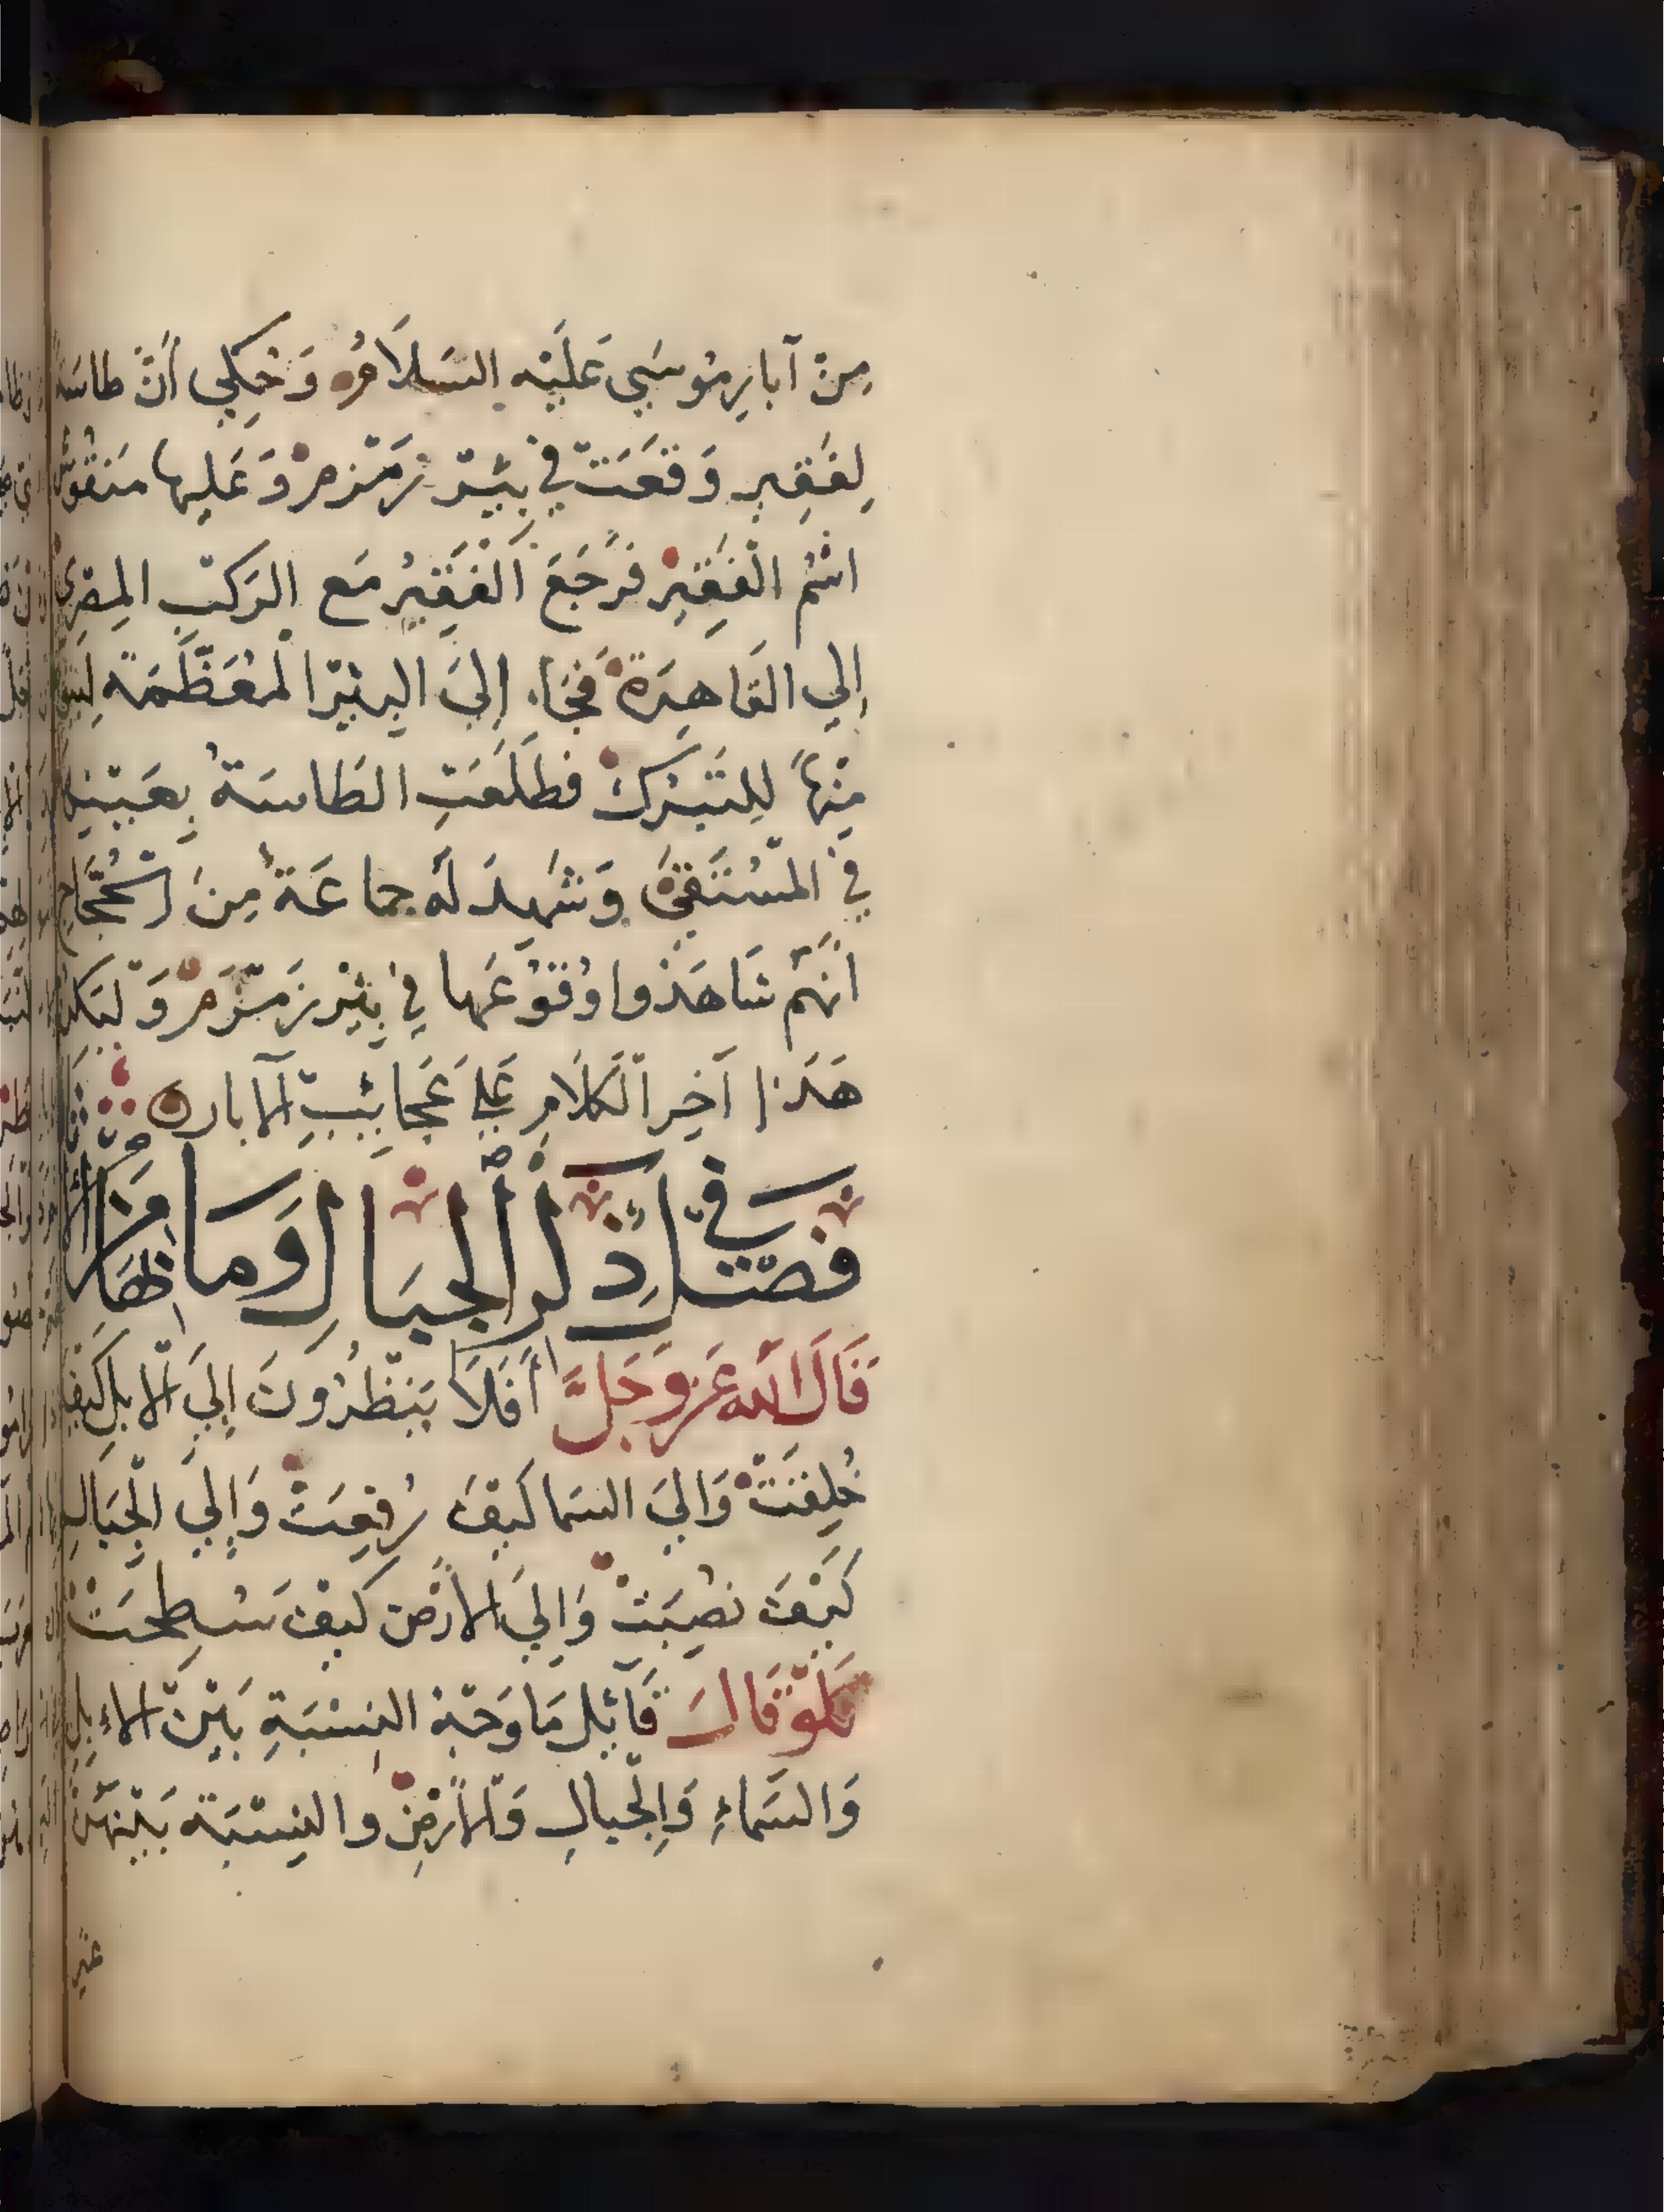 مِنْ آبارِ مُوسَي عَلَيْه السَلَامُ وَحُكِي أَنَّ طاسَةً
لِفَقِيرٍ وَقَعَتْ فِي بِئْرِ زَمْزَمْ وَعَليها مَنقُوش
اسْمُ الْفَقِيرِ فَرَجَعَ الْفَقِيرُ مَع الرَكبِ المِصْرِي
إلي القَاهِرَة فَجَاء إِليَ البِئْرِ الْمُعَظَّمَة
مِنْهَا لِلتَبَرُك فطَلَعَتِ الطَاسَةُ بِعَيْنِها
فِي المُسْتَقَى وَشَهِدَ لَه جماعَة مِنَ الحُجَّاجِ
أَنهَّمُ شَاهَدُوا وُقُوْعَها فِي بِئْرِ زَمْزَمْ وَلْيَكن
هَذا آخِر الْكَلَامِ عَلي عَجَائِبِ الآبار
فَصْل فِي ذِكْرِ الْجِبَالِ وَمَا
قَالَ اللَّه عَزَّ وَجَلَّ أَفَلَا يَنْظُرُونَ إِليَ الإبلِ كَيفَ
خُلِقَتْ وَاليَ السَما كَيْفَ رُفِعَتْ وَإِليَ الْجِبَالِ
كَيْفَ نصِبَتْ وَإِليَ الأَرْضِ كَيفَ سُطِحَتْ
فَلَوْ قَالَ قَائِل مَا وَجْهُ النِسْبَةِ بَيْنَ الإِبِلِ
وَالسَمَاءِ وَالْجِبالِ وَالأَرْضِ والنِسْبَة بَيْنَهُنَّ
غير